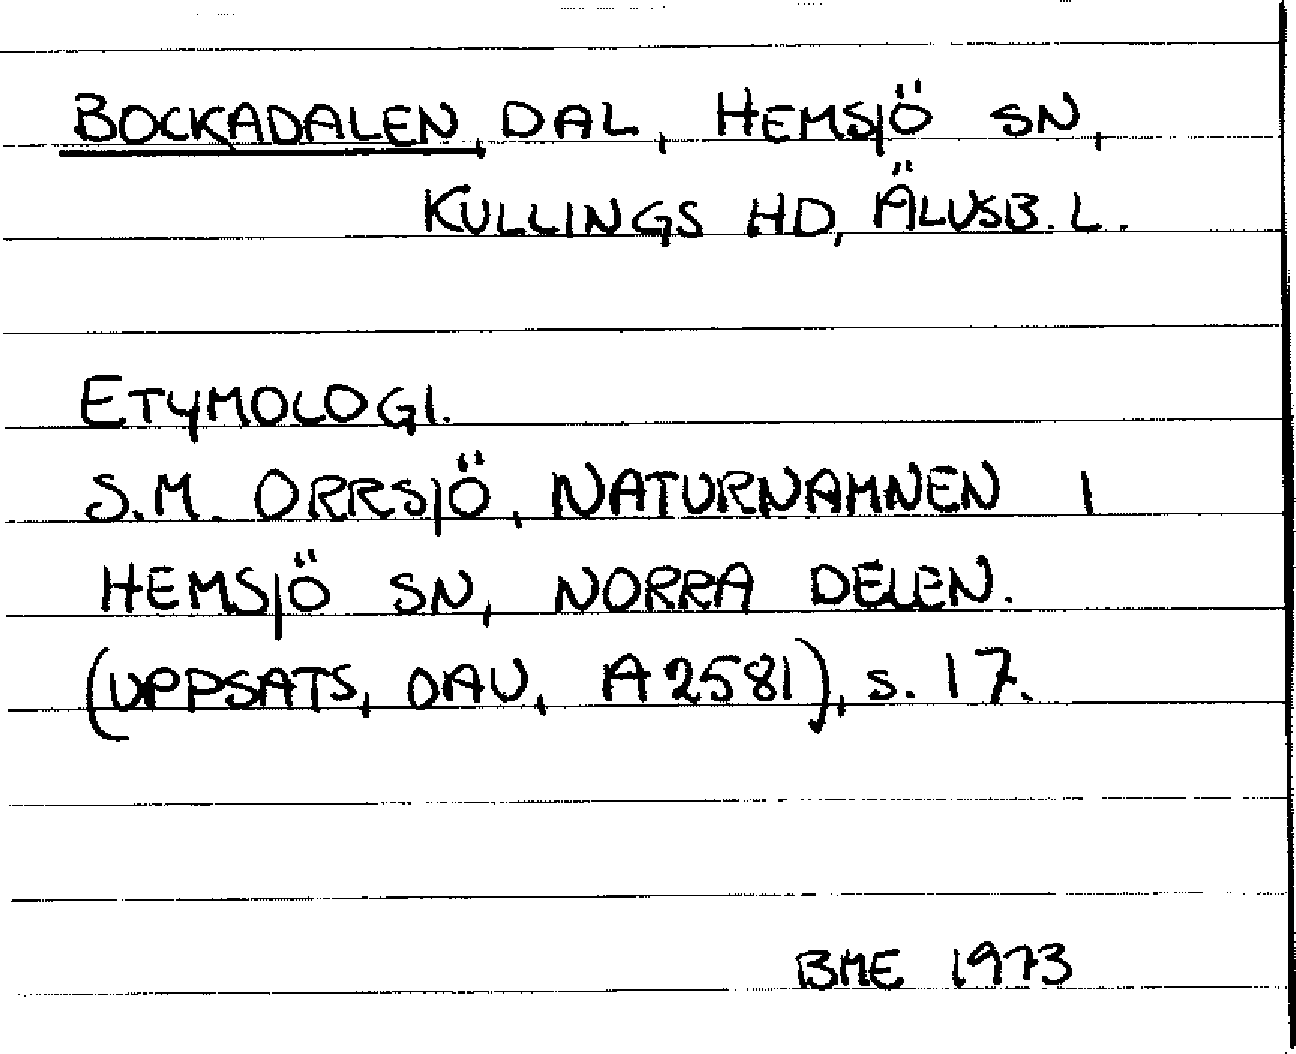 BOCKADALEN, DAL, HEMSJÖ SN,
KULLINGS HD, ÄLVSB. L.
ETYMOLOGI.
S.M. ORRSJÖ, NATURNAMNEN I
HEMSJÖ SN, NORRA DELEN.
(UPPSATS, OAU, A 2581), s. 17.
BME 1973